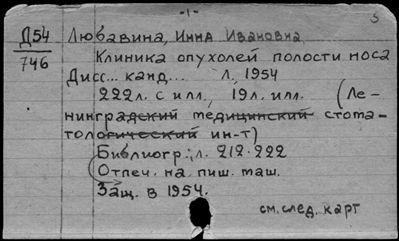 -1-
5
Д54
746
Любавина, Инна Ивановна
Клиника опухолей полости носа
Дисс... канд... Л., 1954
222л. с илл., 19л. илл. (Ле-
нинградский медицинский стома-
тологический ин-т)
Библиогр.: л. 212-222
Отпеч. на пиш. маш.
Защ. в 1954.
см. след. карт